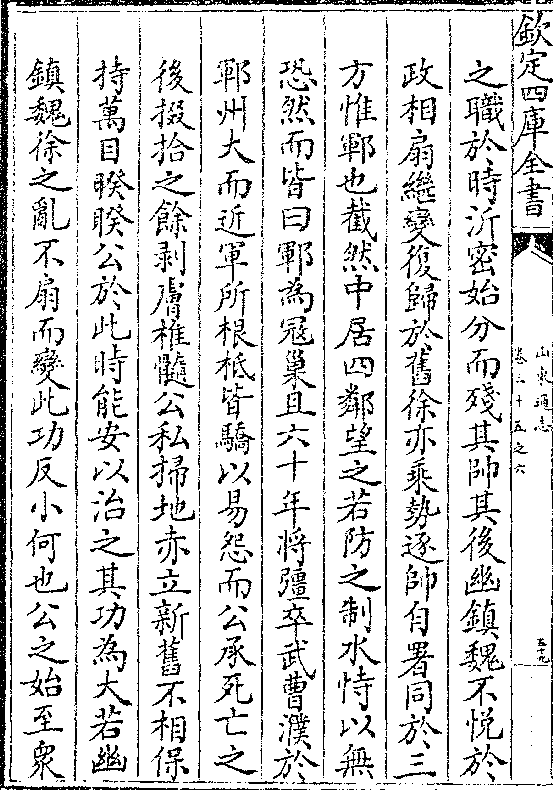 欽定四庫全書
山東通志
卷三十五之六
五十九
之職於時沂密始分而殘其帥其後幽鎮魏不悅於
政相扇繼變復歸於舊徐亦乘勢逐帥自署同於三
方惟鄆也截然中居四鄰望之若防之制水恃以無
恐然而皆曰鄆為冦巢且六十年將彊卒武曹濮於
鄆州大而近軍所根柢皆驕以易怨而公承死亡之
後掇拾之餘剥膚椎髓公私掃地赤立新舊不相保
持萬目睽睽公於此時能安以治之其功為大若幽
鎮魏徐之亂不扇而變此功反小何也公之始至衆